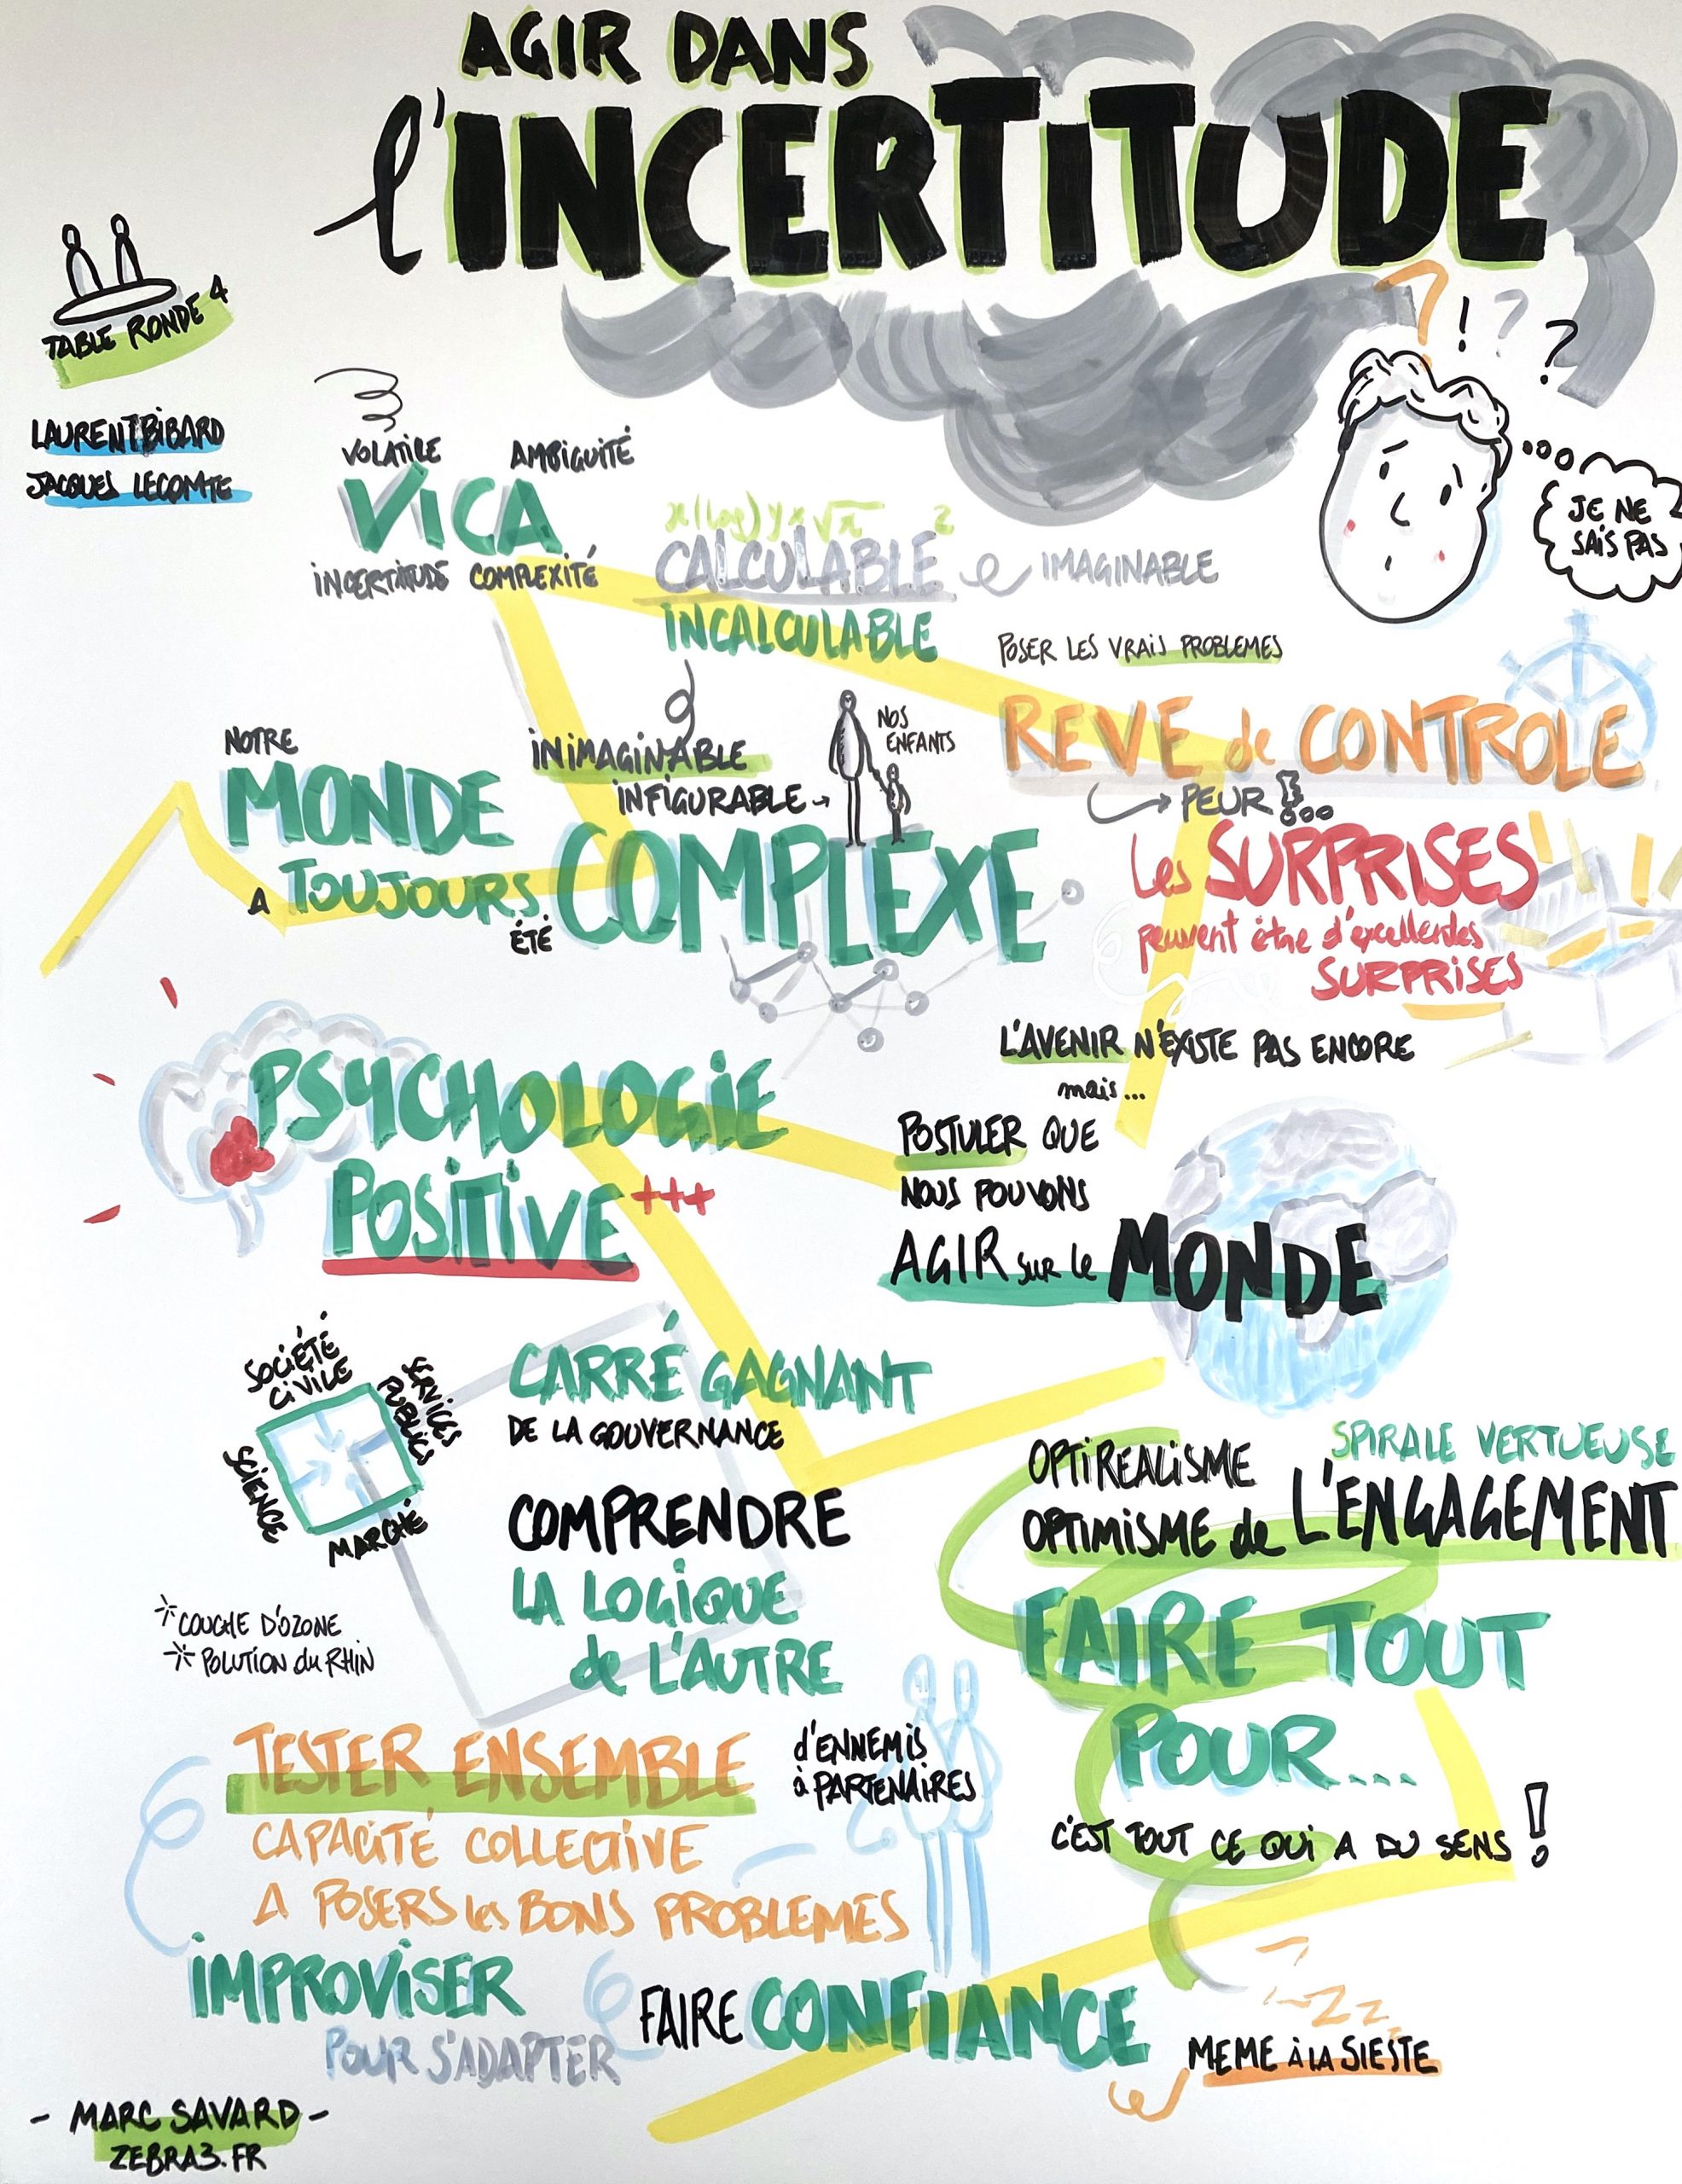 AGIR DANS
l'INCERTITUDE
TABLE RONDE 4
LAURENT BIBARD
JACQUES LECOMTE
? ! ? ?
JE NE
SAIS PAS
VOLATILE AMBIGUITÉ
VICA
INCERTITUDE COMPLEXITÉ
CALCULABLE e IMAGINABLE
INCALCULABLE
POSER LES VRAIS PROBLEMES
REVE de CONTROLE
PEUR !...
NOTRE
MONDE
A TOUJOURS
ÉTÉ
COMPLEXE
INIMAGINABLE
INFIGURABLE
NOS
ENFANTS
Les SURPRISES
peuvent être d'excellentes
SURPRISES
L'AVENIR N'EXISTE PAS ENCORE
mais...
POSTULER QUE
NOUS POUVONS
AGIR sur le MONDE
PSYCHOLOGIE
POSITIVE +++
SOCIÉTÉ
CIVILE
SERVICES
PUBLICS
SCIENCE
MARCHÉ
CARRÉ GAGNANT
DE LA GOUVERNANCE
COMPRENDRE
LA LOGIQUE
de L'AUTRE
COUCHE D'OZONE
POLUTION du RHIN
OPTIREALISME
SPIRALE VERTUEUSE
OPTIMISME de L'ENGAGEMENT
FAIRE TOUT
POUR...
C'EST TOUT CE QUI A DU SENS !
TESTER ENSEMBLE
d'ENNEMIS
à PARTENAIRES
CAPACITÉ COLLECTIVE
A POSERS les BONS PROBLEMES
IMPROVISER
POUR S'ADAPTER
FAIRE CONFIANCE
ZZZ
MEME À LA SIESTE
- MARC SAVARD -
ZEBRA3.FR